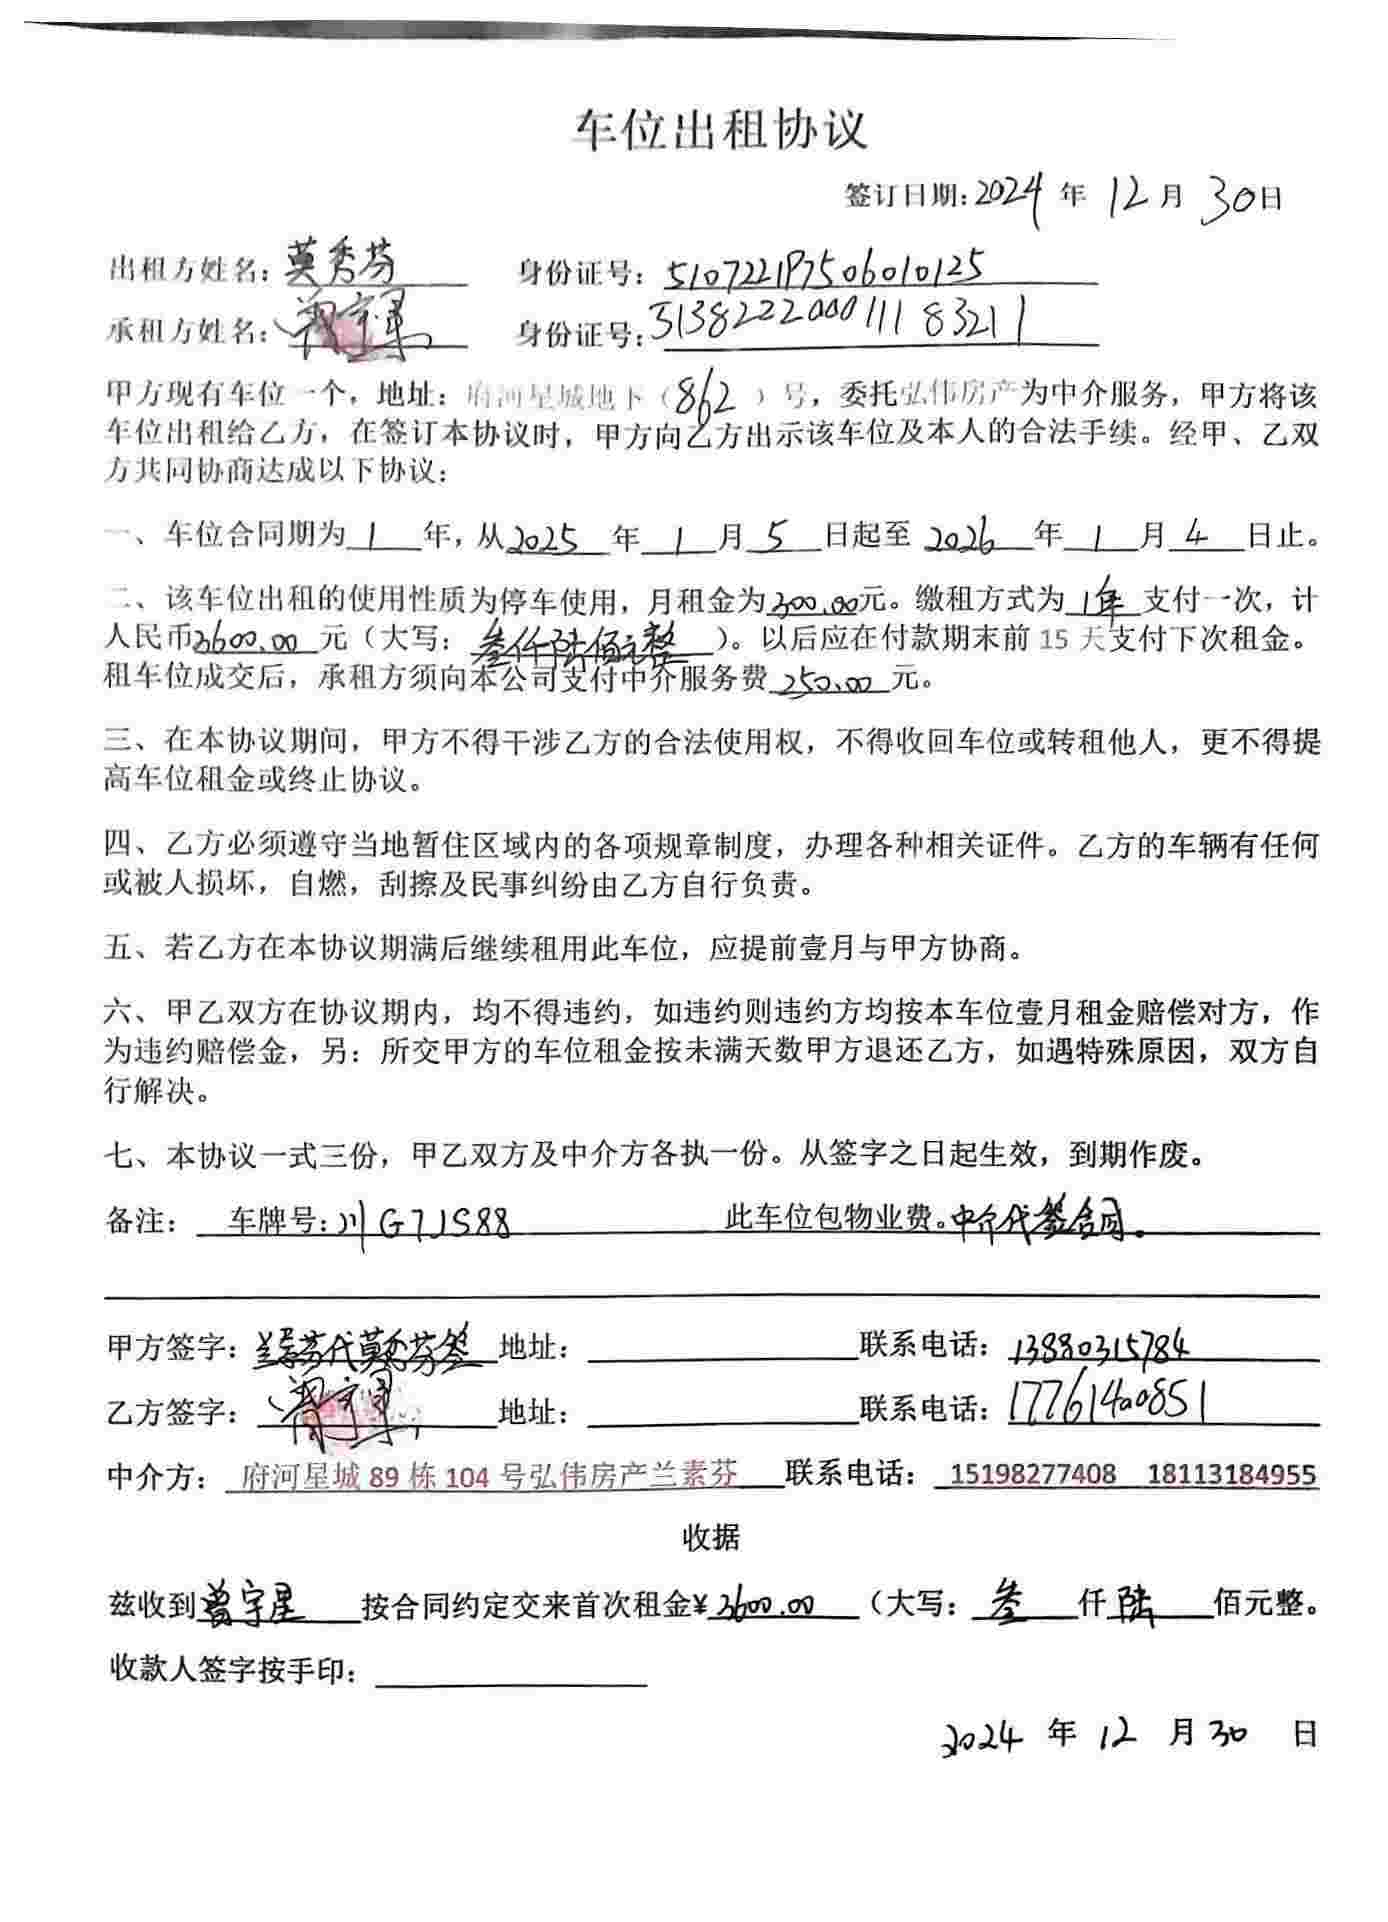 车位出租协议
签订日期:2024年12月30日
出租方姓名:莫秀芬 身份证号:510722197506010125
承租方姓名:曾宇星 身份证号:513822200011183211
甲方现有车位一个，地址：府河星城地下（862）号，委托弘伟房产为中介服务，甲方将该
车位出租给乙方，在签订本协议时，甲方向乙方出示该车位及本人的合法手续。经甲、乙双
方共同协商达成以下协议：
一、车位合同期为1年，从2025年1月5日起至2026年1月4日止。
二、该车位出租的使用性质为停车使用，月租金为300.00元。缴租方式为1年支付一次，计
人民币3600.00元（大写：叁仟陆佰元整）。以后应在付款期末前15天支付下次租金。
租车位成交后，承租方须向本公司支付中介服务费250.00元。
三、在本协议期间，甲方不得干涉乙方的合法使用权，不得收回车位或转租他人，更不得提
高车位租金或终止协议。
四、乙方必须遵守当地暂住区域内的各项规章制度，办理各种相关证件。乙方的车辆有任何
或被人损坏，自燃，刮擦及民事纠纷由乙方自行负责。
五、若乙方在本协议期满后继续租用此车位，应提前壹月与甲方协商。
六、甲乙双方在协议期内，均不得违约，如违约则违约方均按本车位壹月租金赔偿对方，作
为违约赔偿金，另：所交甲方的车位租金按未满天数甲方退还乙方，如遇特殊原因，双方自
行解决。
七、本协议一式三份，甲乙双方及中介方各执一份。从签字之日起生效，到期作废。
备注：车牌号:川G7JS88 此车位包物业费。中介代签合同。
甲方签字：兰素芬代莫秀芬签 地址： 联系电话：13880315784
乙方签字：曾宇星 地址： 联系电话：17761400851
中介方：府河星城89栋104号弘伟房产兰素芬 联系电话：15198277408 18113184955
收据
兹收到曾宇星按合同约定交来首次租金¥3600.00（大写：叁仟陆佰元整。
收款人签字按手印：
2024年12月30日